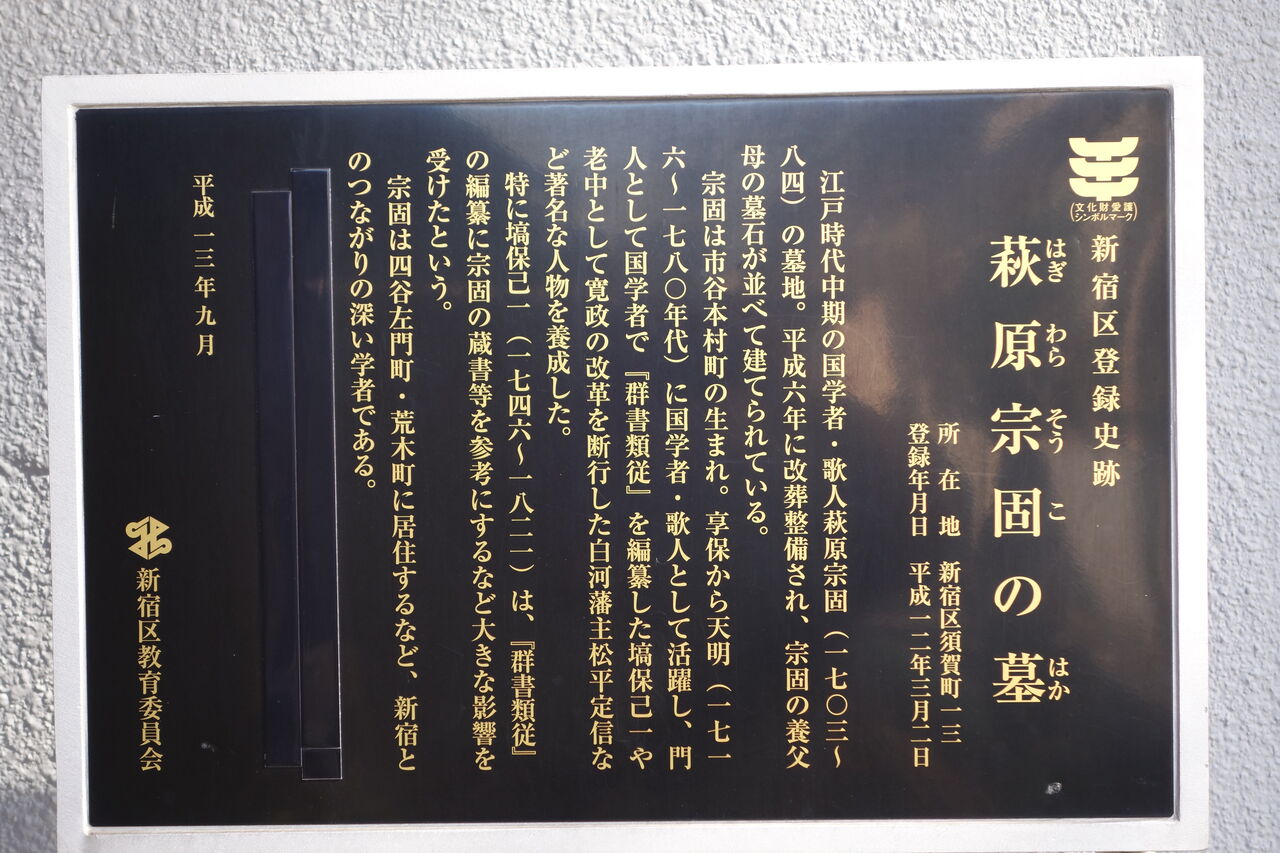 (文化財愛護
シンボルマーク)
新宿区登録史跡
萩原宗固の墓
はぎわらそうこ はか
所在地 新宿区須賀町一三
登録年月日 平成一二年三月二日
江戸時代中期の国学者・歌人萩原宗固(一七〇三〜
八四)の墓地。平成六年に改葬整備され、宗固の養父
母の墓石が並べて建てられている。
宗固は市谷本村町の生まれ。享保から天明(一七一
六〜一七八〇年代)に国学者・歌人として活躍し、門
人として国学者で『群書類従』を編纂した塙保己一や
老中として寛政の改革を断行した白河藩主松平定信な
ど著名な人物を養成した。
特に塙保己一(一七四六〜一八二一)は、『群書類従』
の編纂に宗固の蔵書等を参考にするなど大きな影響を
受けたという。
宗固は四谷左門町・荒木町に居住するなど、新宿と
のつながりの深い学者である。
平成一三年九月
新宿区教育委員会